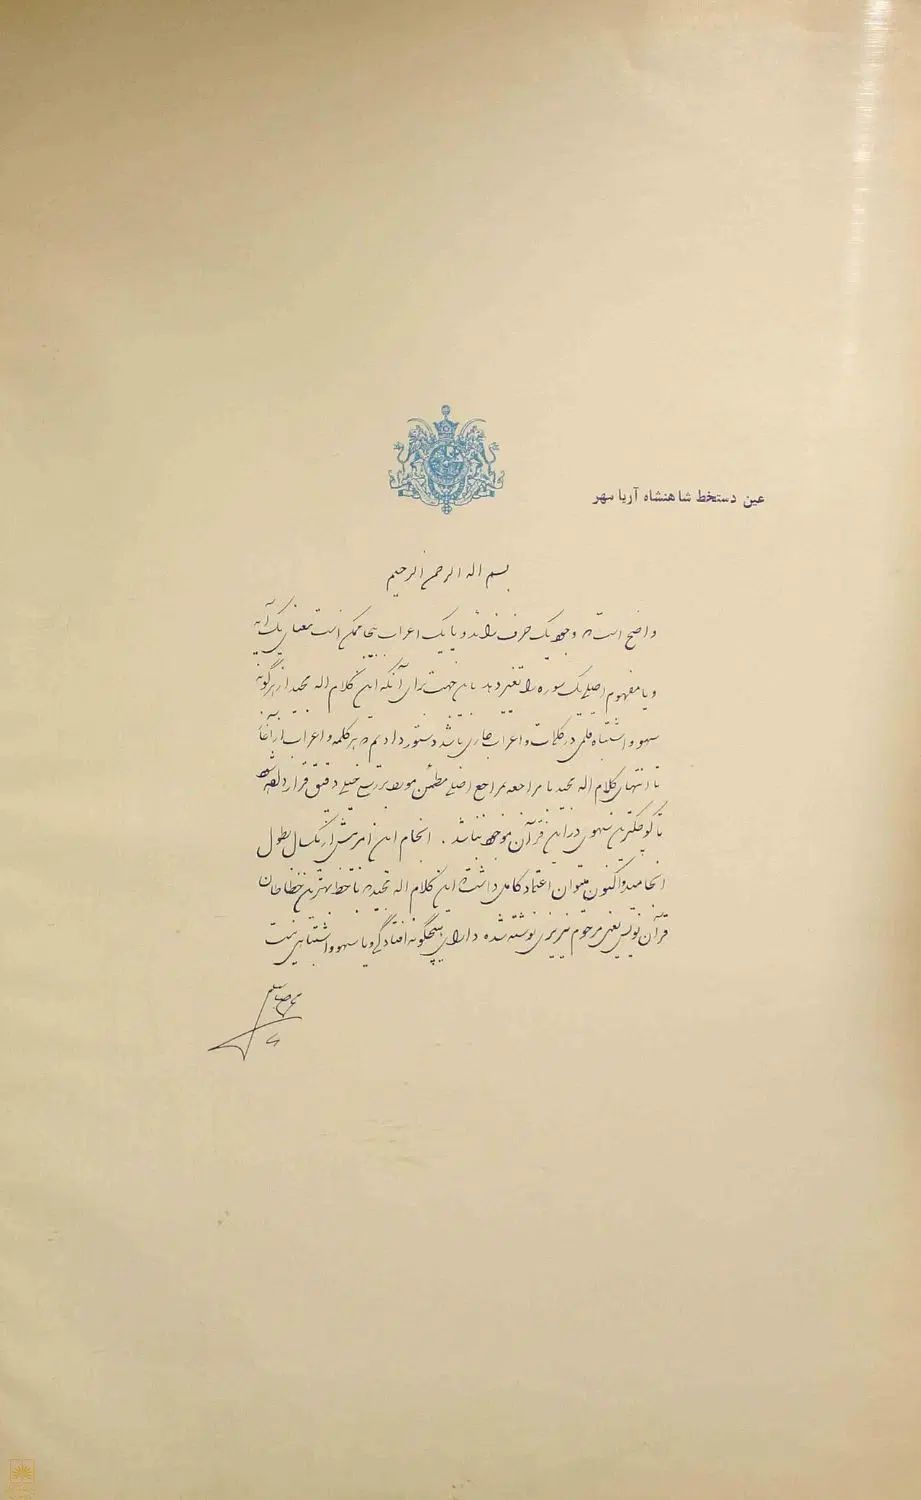 عین دستخط شاهنشاه آریامهر
بسم اله الرحمن الرحیم
واضح است که وجود یک حرف زائد و یا یک اعراب بیجا ممکن است معنای یک آیه
و یا مفهوم اصلی یک سوره را تغییر دهد باین جهت برای آنکه این کلام اله مجید از هرگونه
سهو و اشتباه قلمی در کلمات و اعراب عاری باشد دستور دادیم که هر کلمه و اعراب از آغاز
تا انتهای کلام اله مجید با مراجعه بمراجع اصلی مطمئن مورد بررسی خیلی دقیق قرار داده شود
تا کوچکترین سهوی در این قرآن موجود نباشد . انجام این امر بیش از یکسال بطول
انجامید و اکنون میتوان اعتماد کامل داشت که این کلام اله مجید که با خط بهترین خطاطان
قرآن نویس یعنی مرحوم نیریزی نوشته شده دارای هیچگونه افتادگی و یا سهو و اشتباهی نیست